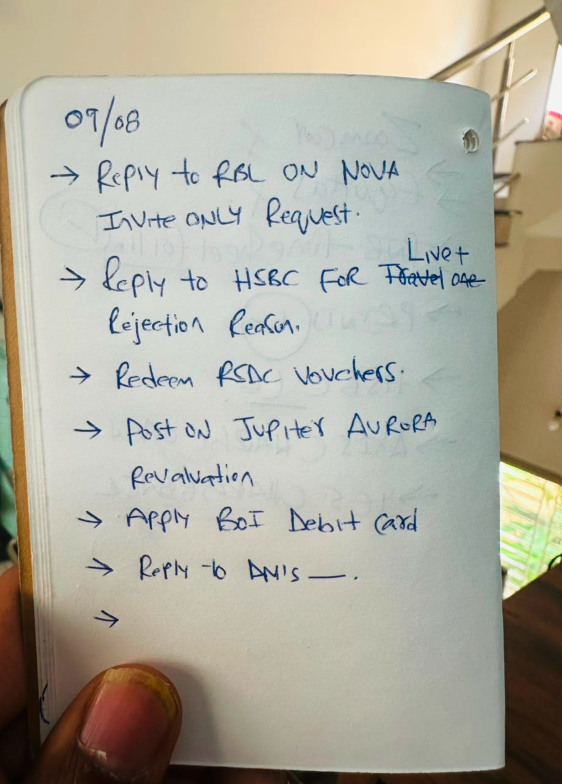 09/08
→ Reply to RBL ON NOVA
Invite ONLY Request.
Live+
→ Reply to HSBC FOR Travel one
Rejection Reason.
→ Redeem RSDC Vouchers.
→ Post ON Jupiter AURORA
Revaluation
→ Apply BOI Debit Card
→ Reply to DM's —.
→